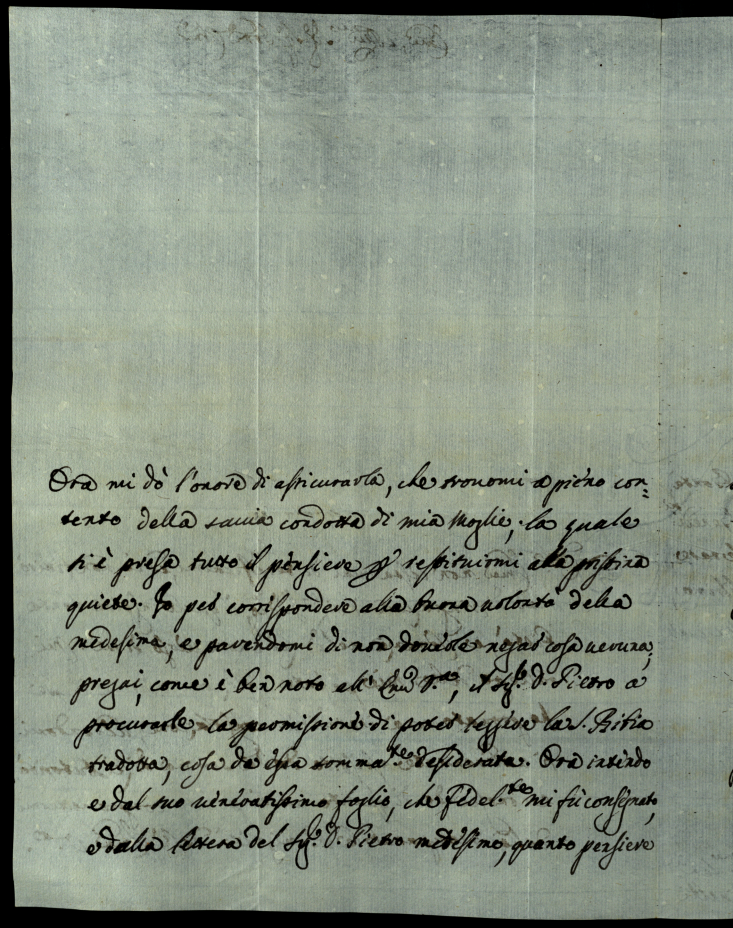 Ora mi dò l'onore di assicurarla, che trovomi a pieno con=
tento della savia condotta di mia Moglie, la quale
si è presa tutto il pensiere per restituirmi alla pristina
quiete. Io per corrispondere alla buona volontà della
medesima, e parendomi di non doverle negar cosa veruna,
pregai, come è ben noto all' V.ra, il Sig.r D. Pietro a
procurarle la permissione di poter leggere la S. Bibia
tradotta, cosa da essa somma.te desiderata. Ora intendo
e dal suo veneratissimo foglio, che fedel.te mi fù consegnato,
e dalla lettera del Sig.r D. Pietro medesimo, quanto pensiere